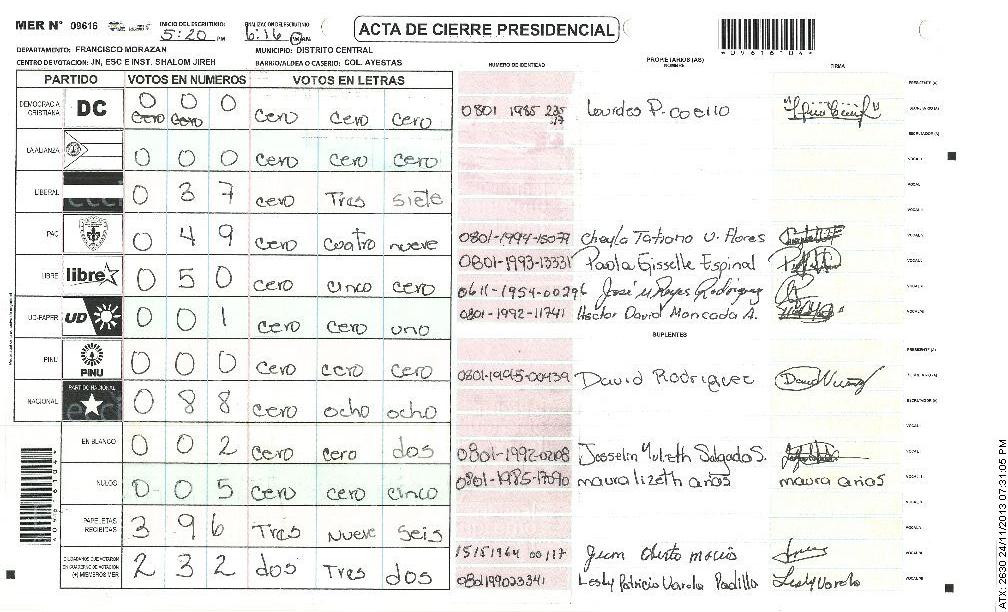 MER N° 09616 INICIO DEL ESCRUTINIO 5:20 PM FINALIZACION DEL ESCRUTINIO 6:16 PM ACTA DE CIERRE PRESIDENCIAL *09616104*
DEPARTAMENTO: FRANCISCO MORAZAN MUNICIPIO: DISTRITO CENTRAL
CENTRO DE VOTACION: JN, ESC E INST. SHALOM JIREH BARRIO/ALDEA O CASERIO: COL. AYESTAS
PARTIDO VOTOS EN NUMEROS VOTOS EN LETRAS
DEMOCRACIA CRISTIANA DC 0 0 0 cero cero cero cero cero
LA ALIANZA 0 0 0 cero cero cero
LIBERAL 0 3 7 cero Tres siete
PAC 0 4 9 cero cuatro nueve
LIBRE libre 0 5 0 cero cinco cero
UD-FAPER UD 0 0 1 cero cero uno
PINU PINU 0 0 0 cero cero cero
NACIONAL PARTIDO NACIONAL 0 8 8 cero ocho ocho
EN BLANCO 0 0 2 cero cero dos
NULOS 0 0 5 cero cero cinco
PAPELETAS RECIBIDAS 3 9 6 Tres nueve seis
CIUDADANOS QUE VOTARON EN CUADERNO DE VOTACION (+) MIEMBROS MER 2 3 2 dos Tres dos
NUMERO DE IDENTIDAD PROPIETARIOS (AS) NOMBRE FIRMA
PRESIDENTE (A)
0801 1985 Lourdes P. coello SECRETARIO (A)
ESCRUTADOR (A)
VOCAL I
VOCAL
VOCAL
0801-1994-15079 Cheyla Tatiana U. Flores VOCAL
0801-1993-13331 Paola Gisselle Espinal VOCAL
0611-1954-00296 José M Reyes Rodriguez VOCAL
0801-1992-11741 Hector David Moncada A. VOCAL
SUPLENTES
PRESIDENTE (A)
0801-1995-00939 David Rodriguez SECRETARIO (A)
ESCRUTADOR (A)
VOCAL
0801-1992-02108 Josselin Salgado S. VOCAL
0801-1985-17090 maura lizeth arias maura arias VOCAL
VOCAL
VOCAL
VOCAL
Lesly Patricia Varela Padilla Lesly Varela VOCAL
ATX-2630 24/11/2013 07:31:05 PM